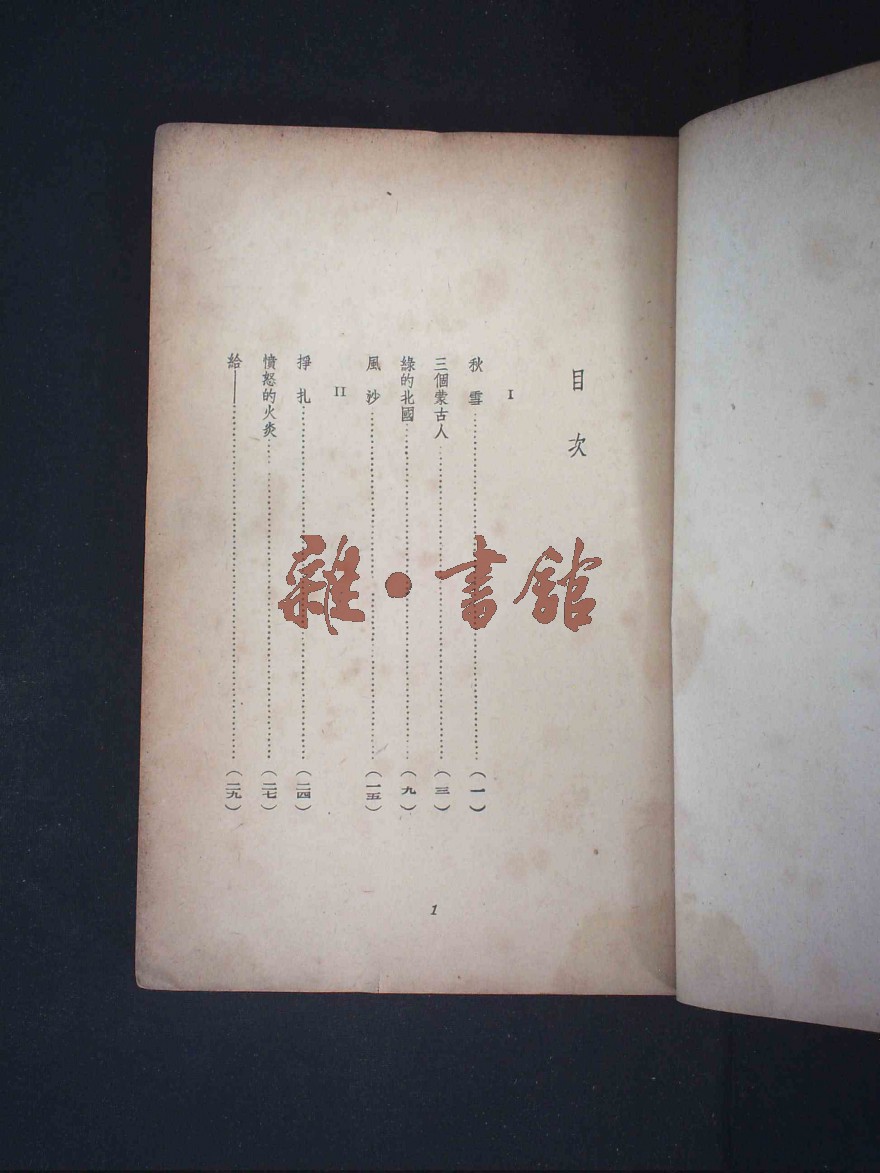 目次
I
秋雪……(一)
三個蒙古人……(三)
綠的北國……(九)
風沙……(一五)
II
掙扎……(二四)
憤怒的火炎……(二七)
給——……(二九)
1
雜•書館